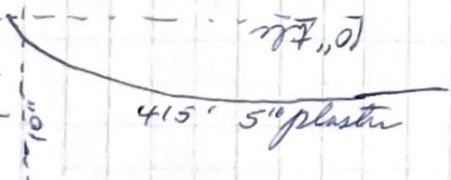 10"
415' 5" plaster
10"